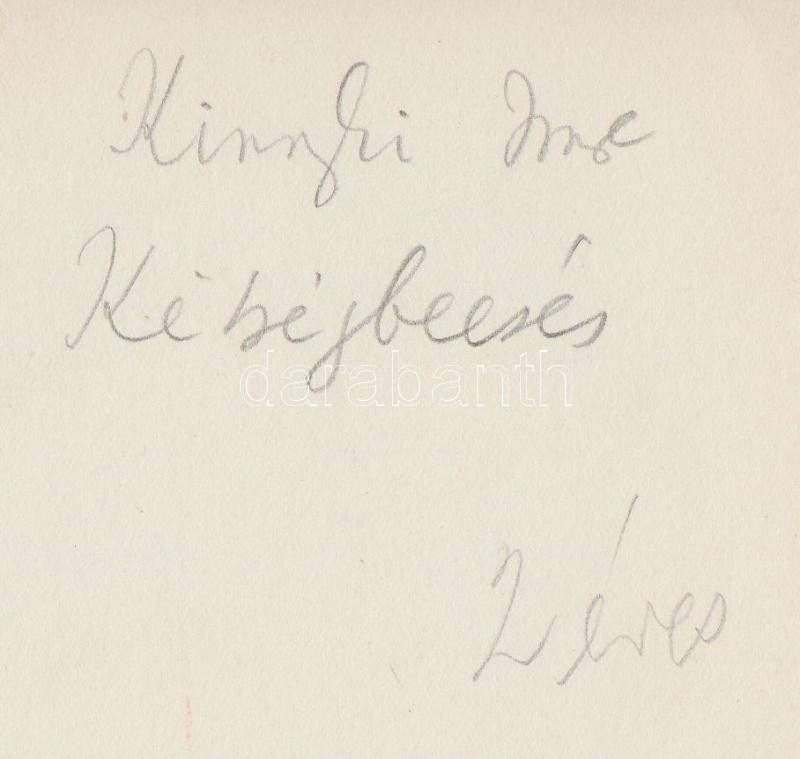 Kinszki Imre
Kétségbeesés
darabanth
2 éves